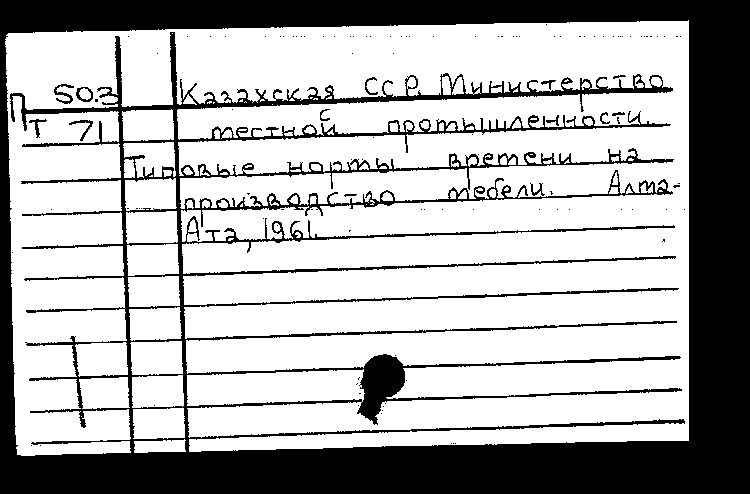 П 50.3 Казахская ССР. Министерство
Т 71 местной промышленности.
Типовые нормы времени на
производство мебели. Алма-
Ата, 1961.